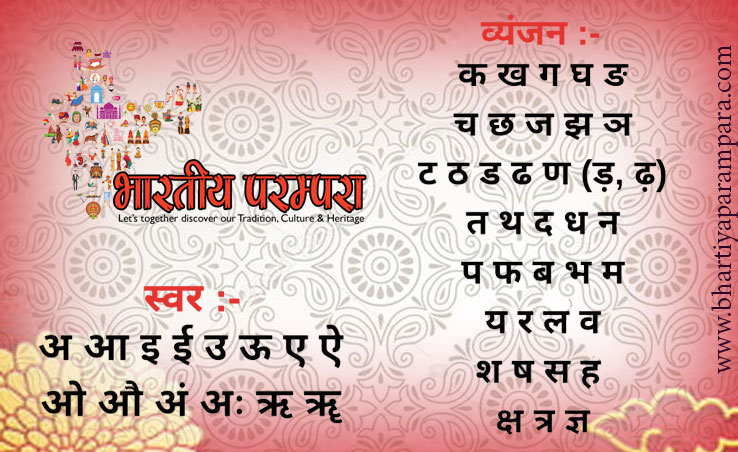 भारतीय परम्परा
Let's together discover our Tradition, Culture & Heritage
स्वर :-
अ आ इ ई उ ऊ ए ऐ
ओ औ अं अः ऋ ॠ
व्यंजन :-
क ख ग घ ङ
च छ ज झ ञ
ट ठ ड ढ ण (ड़, ढ़)
त थ द ध न
प फ ब भ म
य र ल व
श ष स ह
क्ष त्र ज्ञ
www.bhartiyaparampara.com